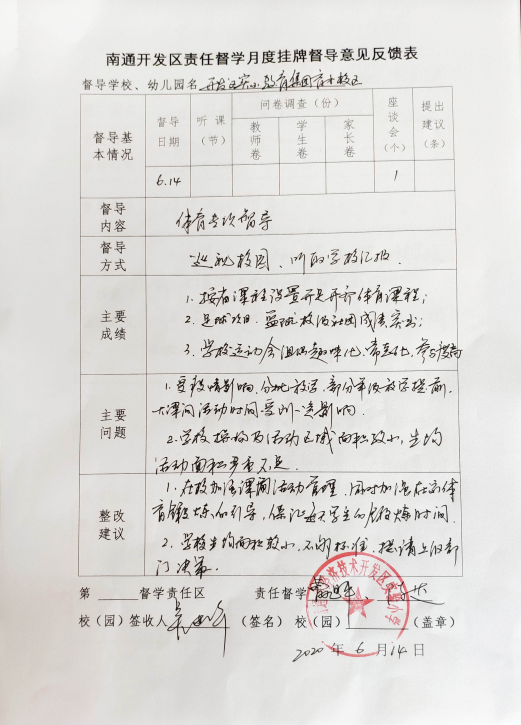 南通开发区责任督学月度挂牌督导意见反馈表
督导学校、幼儿园名 开发区实小教育集团育才校区
督导基本情况
督导日期
听课(节)
问卷调查(份)
教师卷
学生卷
家长卷
座谈会(个)
提出建议(条)
6.14
1
督导内容
体育专项督导
督导方式
巡视校园、听取学校汇报
主要成绩
1. 按省课程设置开足开齐体育课程;
2. 足球项目、篮球校级社团成果突出;
3. 学校运动会组织趣味化、常态化,参与度高
主要问题
1. 受疫情影响,分批放学,部分年级放学提前,
大课间活动时间受到一定影响.
2. 学校操场及活动区域面积较小,生均
活动面积严重不足.
整改建议
1. 在校加强课间活动管理,同时加强在家体
育锻炼的引导,保证每天学生的锻炼时间.
2. 学校生均面积较小,不达标准,提请上级部
门决策.
第 督学责任区 责任督学
校(园)签收人 (签名) 校(园) (盖章)
2020 年 6 月 14 日